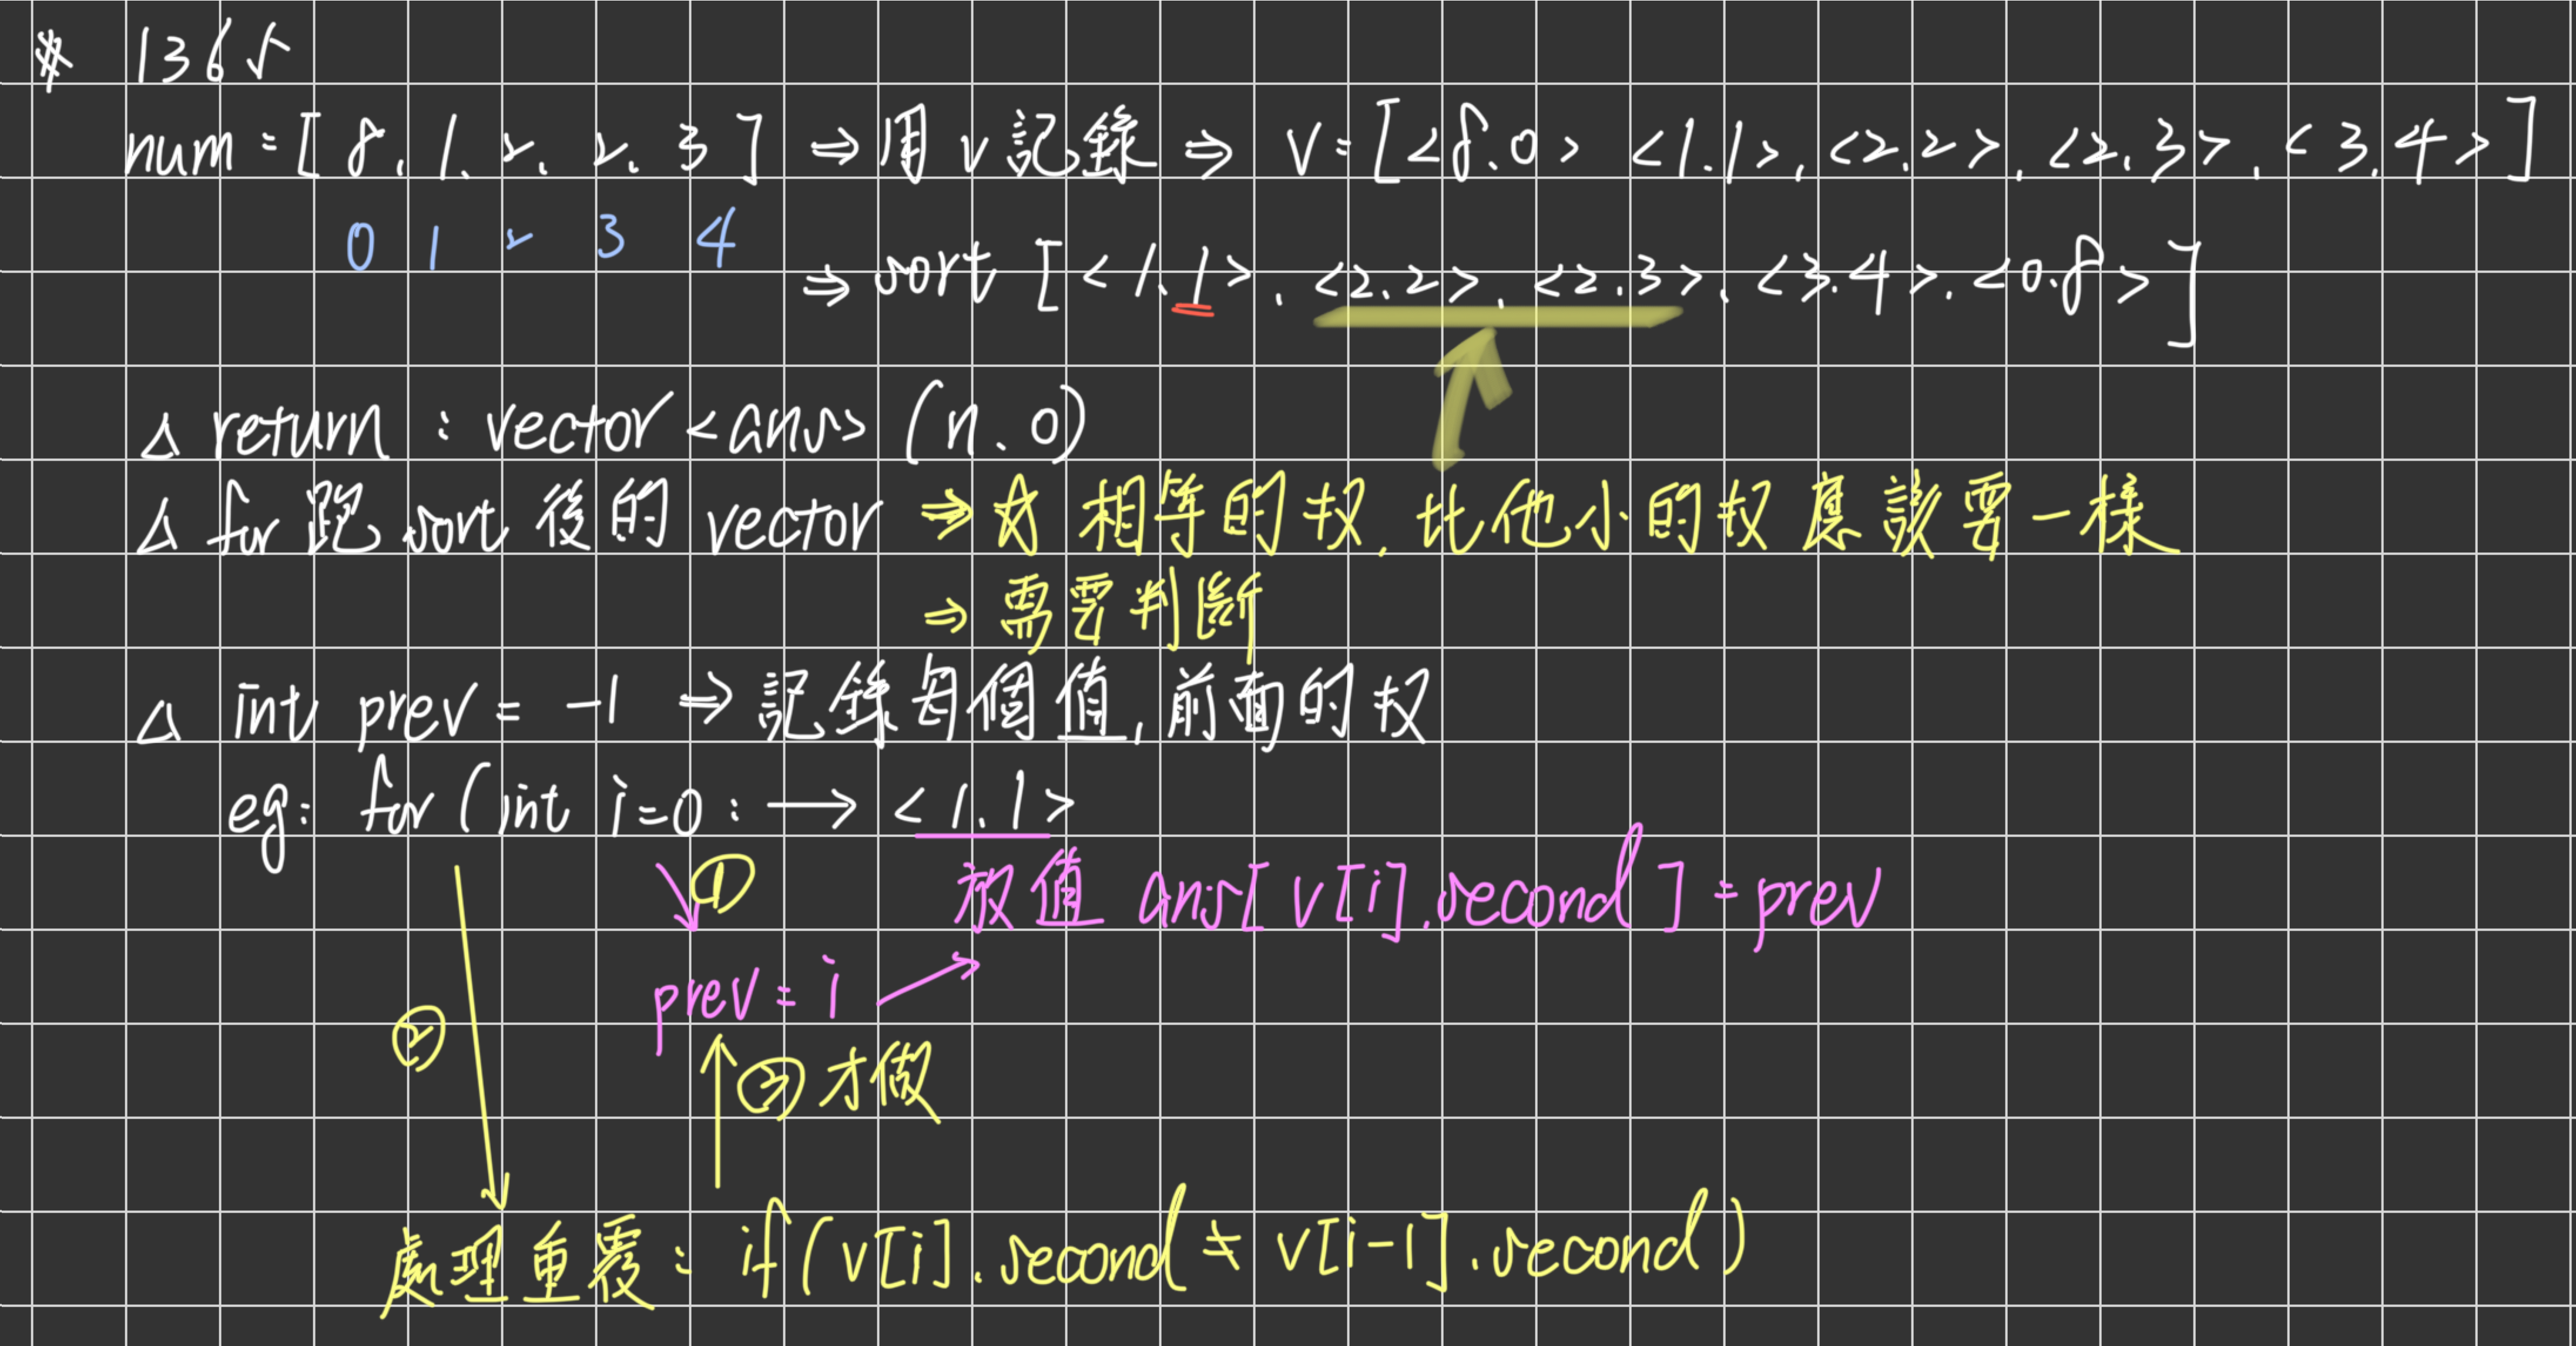 # 1365
num = [ 8, 1, 2, 2, 3 ] ⇒ 用 v 記錄 ⇒ v = [<8,0> <1,1>, <2,2>, <2,3>, <3,4>]
0 1 2 3 4
⇒ sort [<1,1>, <2,2>, <2,3>, <3,4>, <0,8>]
△ return : vector <ans> (n, 0)
△ for 跑 sort 後的 vector ⇒ 相等的 权, 比他小的 权 應該要一樣
⇒ 需要判斷
△ int prev = -1 ⇒ 記錄每個值, 前面的 权
eg: for (int i=0 : → <1,1>
① 放值 ans[v[i].second] = prev
prev = i
②
③ 才做
處理重覆 : if (v[i].second ≠ v[i-1].second)